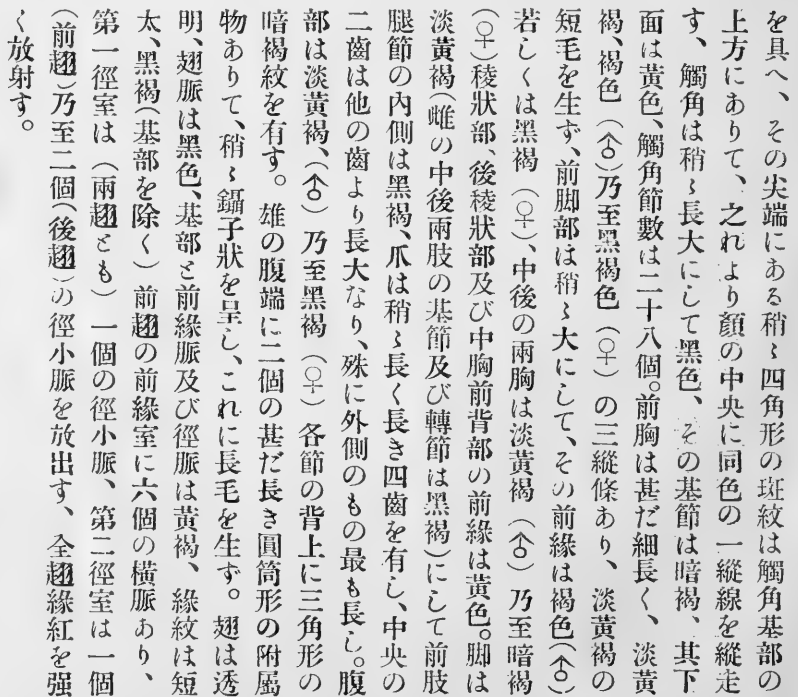 を具へ、その尖端にある稍〻四角形の斑紋は觸角基部の
上方にありて、之れより顏の中央に同色の一縱線を縱走
す、觸角は稍〻長大にして黑色、その基節は暗褐、其下
面は黃色、觸角節數は二十八個。前胸は甚だ細長く、淡黃
褐、褐色(♂)乃至黑褐色(♀)の三縱條あり、淡黃褐の
短毛を生ず、前脚部は稍〻大にして、その前緣は褐色(♂)
若しくは黑褐(♀)、中後の兩胸は淡黃褐(♂)乃至暗褐
(♀)稜狀部、後稜狀部及び中胸前背部の前緣は黃色。脚は
淡黃褐(雌の中後兩肢の基節及び轉節は黑褐)にして前肢
腿節の內側は黑褐、爪は稍〻長く長き四齒を有し、中央の
二齒は他の齒より長大なり、殊に外側のもの最も長し。腹
部は淡黃褐、(♂)乃至黑褐(♀)各節の背上に三角形の
暗褐紋を有す。雄の腹端に二個の甚だ長き圓筒形の附屬
物ありて、稍〻鑷子狀を呈し、これに長毛を生ず。翅は透
明、翅脈は黑色、基部と前緣脈及び徑脈は黃褐、緣紋は短
太、黑褐(基部を除く)前翅の前緣室に六個の橫脈あり、
第一徑室は(兩翅とも)一個の徑小脈、第二徑室は一個
(前翅)乃至二個(後翅)の徑小脈を放出す、全翅緣紅を强
く放射す。